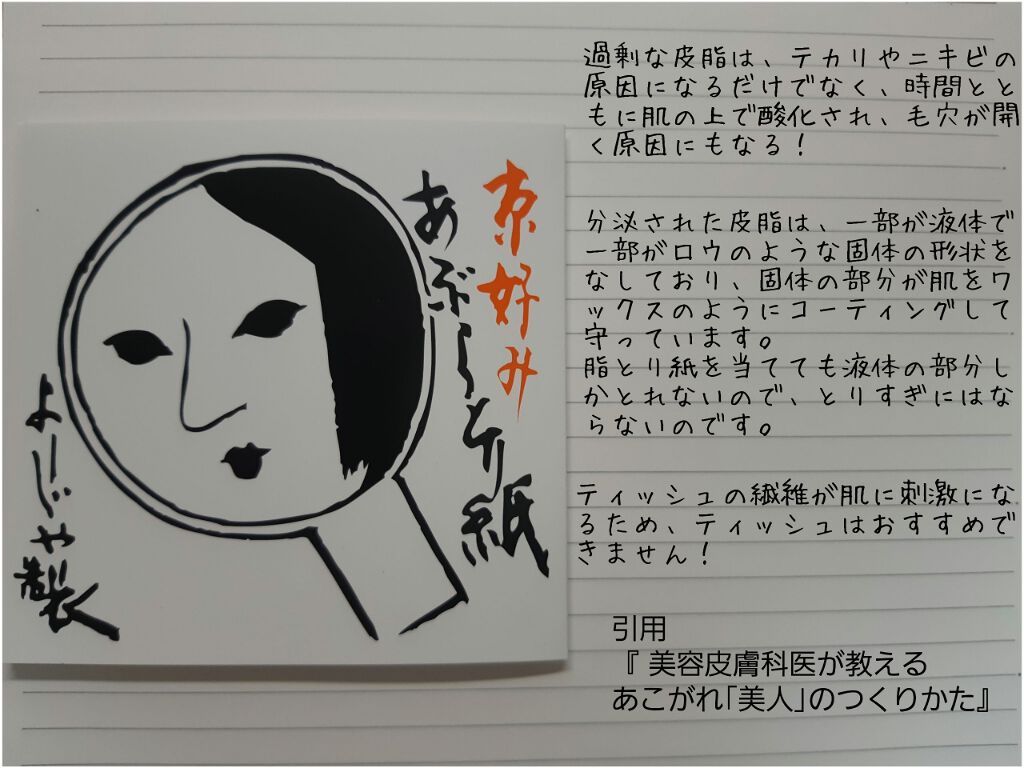 京好み
あぶらとり紙
よーじや製
過剰な皮脂は、テカリやニキビの
原因になるだけでなく、時間とと
もに肌の上で酸化され、毛穴が開
く原因にもなる！
分泌された皮脂は、一部が液体で
一部がロウのような固体の形状を
なしており、固体の部分が肌をワ
ックスのようにコーティングして
守っています。
脂とり紙を当てても液体の部分し
かとれないので、とりすぎにはな
らないのです。
ティッシュの繊維が肌に刺激にな
るため、ティッシュはおすすめで
きません！
引用
『 美容皮膚科医が教える
あこがれ｢美人｣のつくりかた』